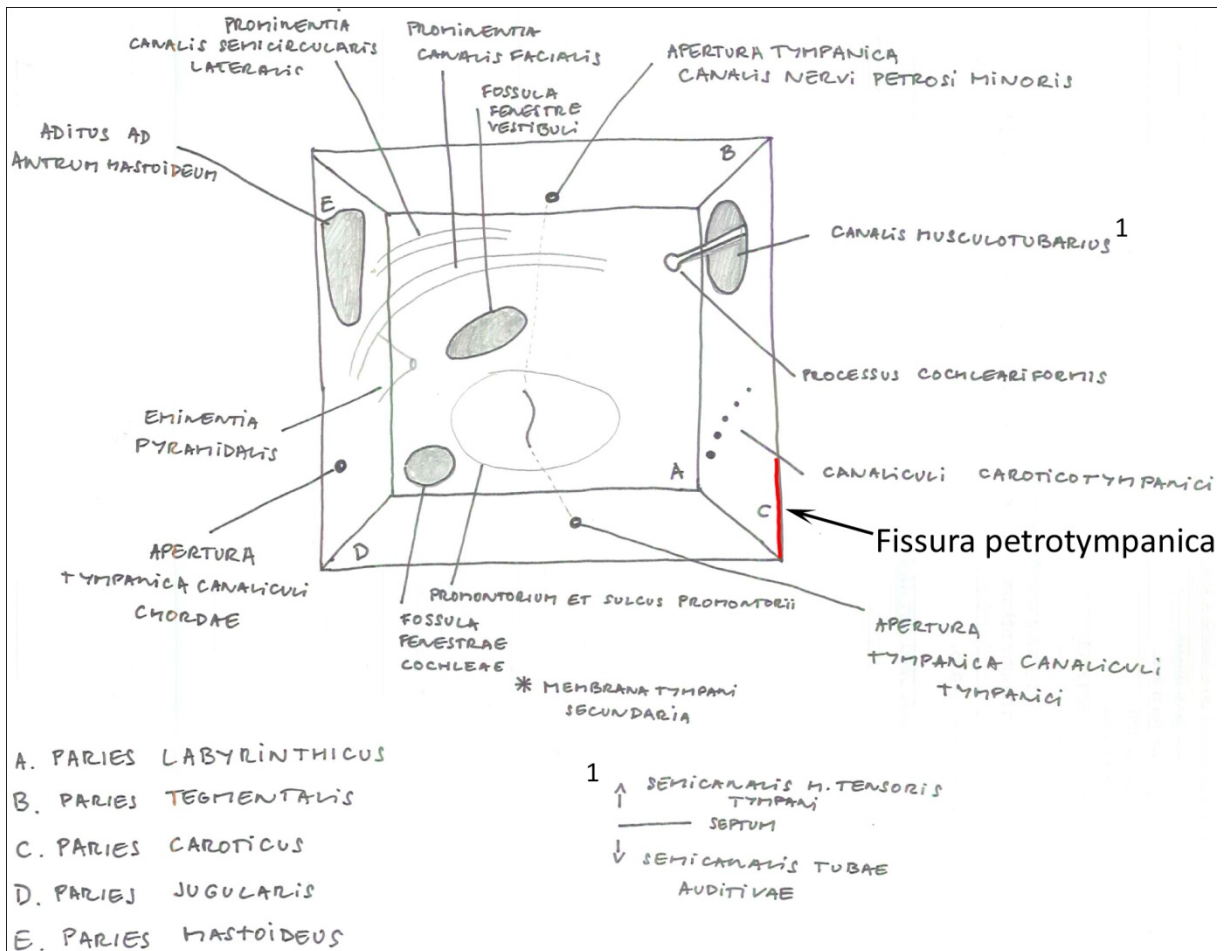 PROMINENTIA
CANALIS SEMICIRCULARIS
LATERALIS
PROMINENTIA
CANALIS FACIALIS
APERTURA TYMPANICA
CANALIS NERVI PETROSI MINORIS
FOSSULA
FENESTRE
VESTIBULI
ADITUS AD
ANTRUM MASTOIDEUM
B
E
CANALIS MUSCULOTUBARIUS 1
PROCESSUS COCHLEARIFORMIS
EMINENTIA
PYRAMIDALIS
A
CANALICULI CAROTICOTYMPANICI
C
Fissura petrotympanica
D
APERTURA
TYMPANICA CANALICULI
CHORDAE
PROMONTORIUM ET SULCUS PROMONTORII
FOSSULA
FENESTRAE
COCHLEAE
* MEMBRANA TYMPANI
SECUNDARIA
APERTURA
TYMPANICA CANALICULI
TYMPANICI
A. PARIES LABYRINTHICUS
B. PARIES TEGMENTALIS
C. PARIES CAROTICUS
D. PARIES JUGULARIS
E. PARIES MASTOIDEUS
1
SEMICANALIS M. TENSORIS
TYMPANI
SEPTUM
SEMICANALIS TUBAE
AUDITIVAE